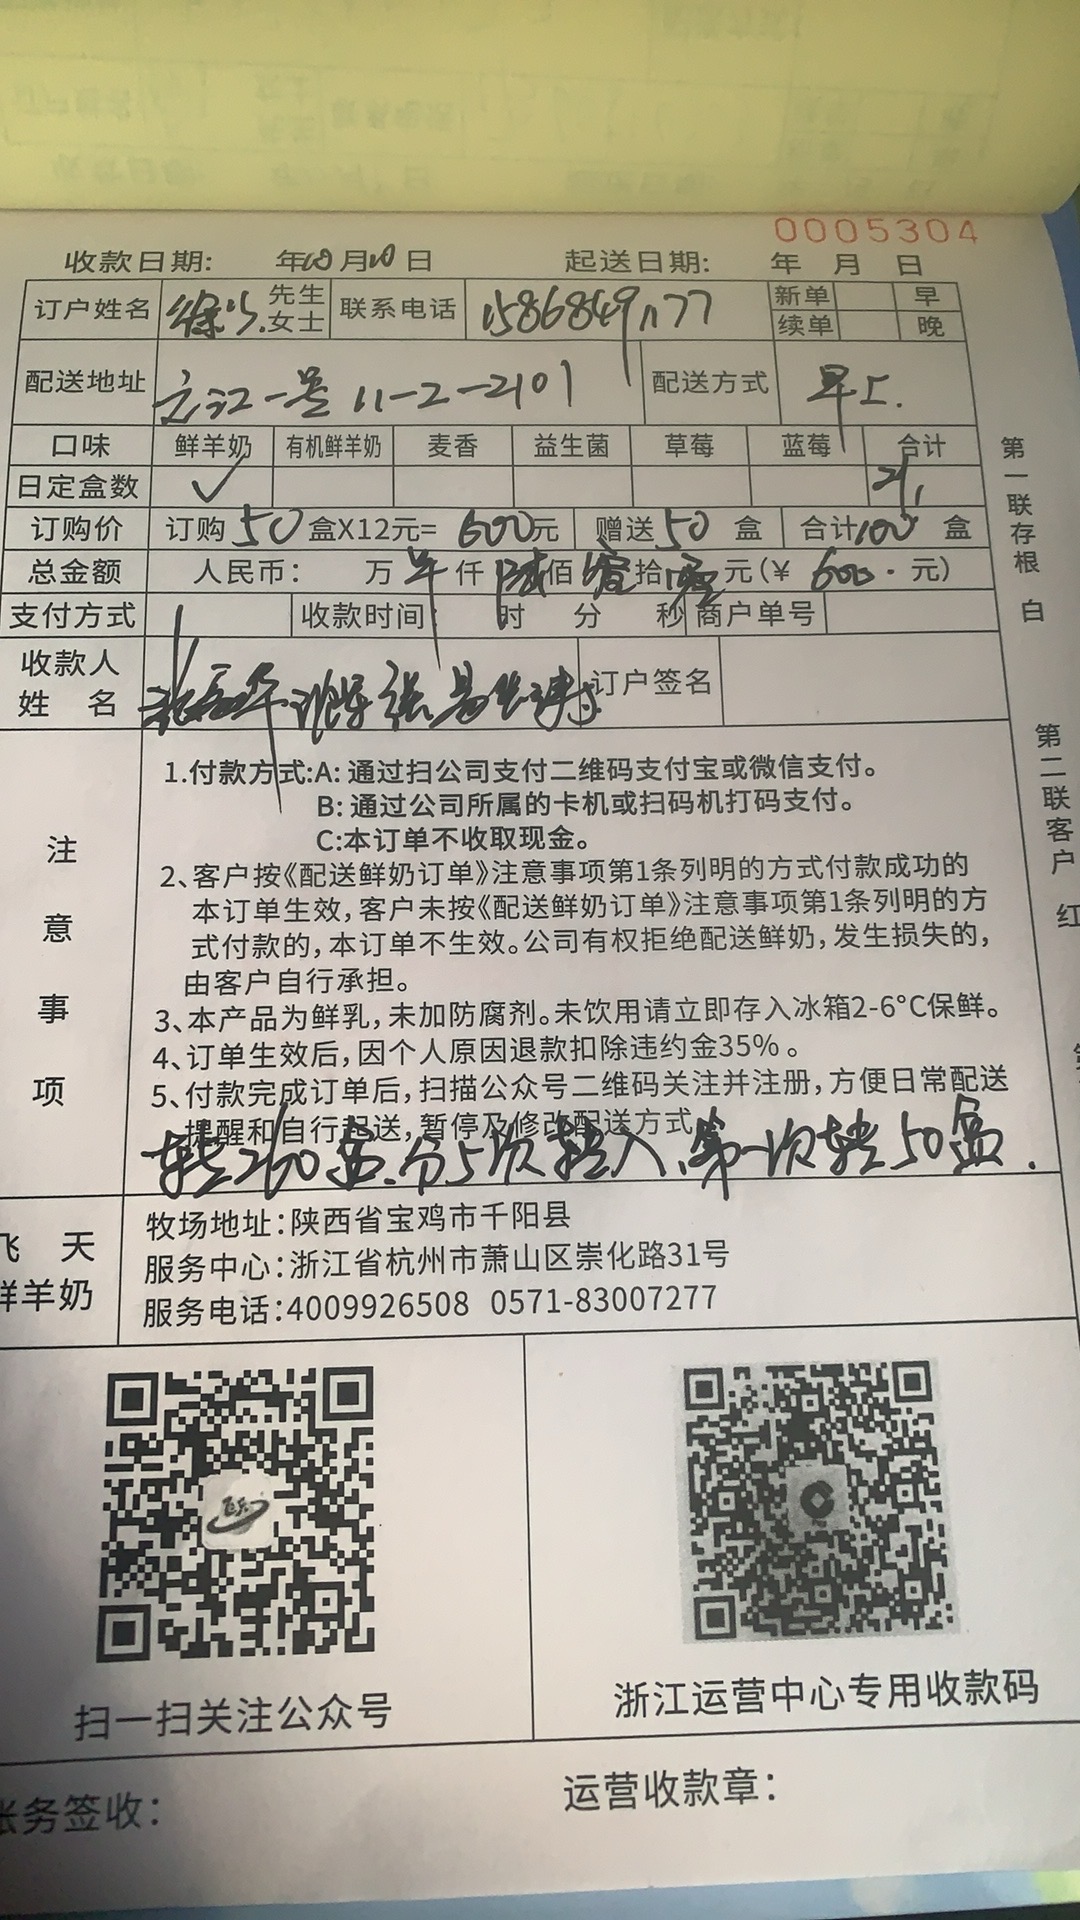 0005304
收款日期: 年10月10日 起送日期: 年 月 日
订户姓名 徐 先生 女士 联系电话 15868491177 新单 早
续单 晚
配送地址 之江一号 11-2-2101 配送方式 早上.
口味 鲜羊奶 有机鲜羊奶 麦香 益生菌 草莓 蓝莓 合计
日定盒数 ✓
订购价 订购 50 盒X12元= 600元 赠送 50 盒 合计100 盒
总金额 人民币: 万 仟 陆佰 零拾 零元(¥ 600. 元)
支付方式 收款时间: 时 分 秒 商户单号
收款人
姓 名 订户签名
注意事项
1.付款方式:A: 通过扫公司支付二维码支付宝或微信支付。
B: 通过公司所属的卡机或扫码机打码支付。
C:本订单不收取现金。
2、客户按《配送鲜奶订单》注意事项第1条列明的方式付款成功的
本订单生效，客户未按《配送鲜奶订单》注意事项第1条列明的方
式付款的，本订单不生效。公司有权拒绝配送鲜奶，发生损失的，
由客户自行承担。
3、本产品为鲜乳，未加防腐剂。未饮用请立即存入冰箱2-6°C保鲜。
4、订单生效后，因个人原因退款扣除违约金35%。
5、付款完成订单后，扫描公众号二维码关注并注册，方便日常配送
提醒和自行起送，暂停及修改配送方式
转260盒.分5次转入、第一次转50盒.
飞 天
鲜羊奶
牧场地址:陕西省宝鸡市千阳县
服务中心:浙江省杭州市萧山区崇化路31号
服务电话:4009926508 0571-83007277
扫一扫关注公众号
浙江运营中心专用收款码
账务签收:
运营收款章:
第一联存根 白
第二联客户 红